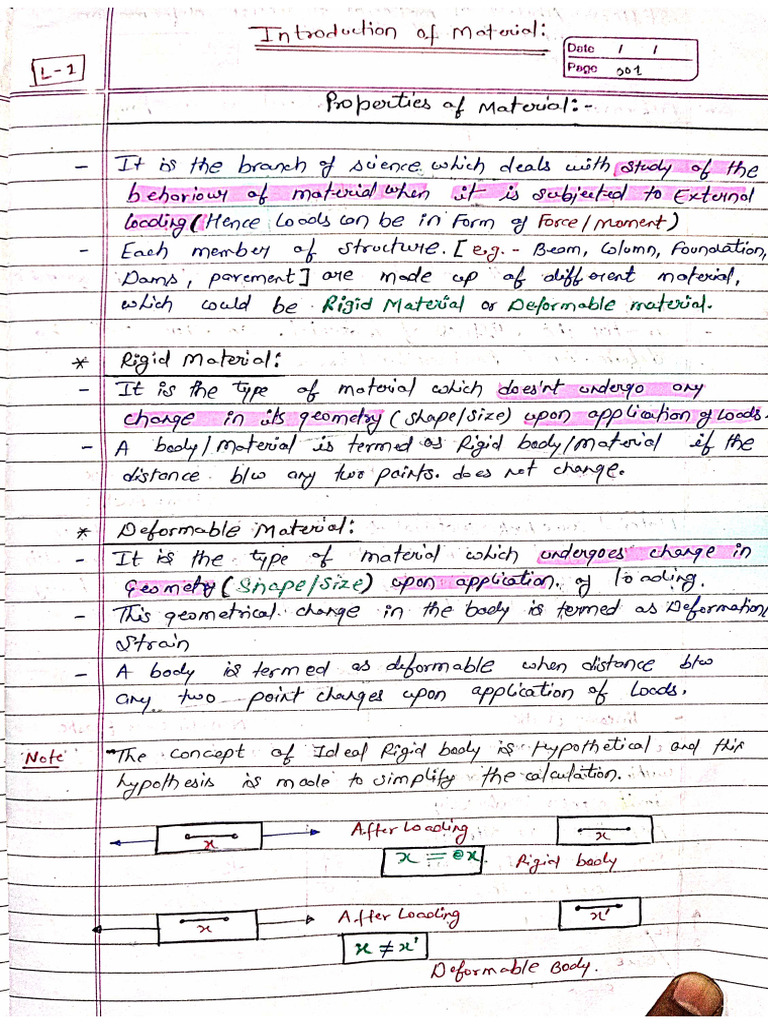 Introduction of Material:
Date / /
L-1
Page 001
Properties of Material:-
- It is the branch of science which deals with study of the
behaviour of material when it is subjected to External
loading (Hence Loads can be in Form of Force/Moment)
- Each member of structure. [e.g. - Beam, Column, Foundation,
Dams, pavement] are made up of different material,
which could be Rigid Material or Deformable material.
* Rigid Material:
- It is the type of material which does'nt undergo any
change in its geometry (shape/size) upon application of Loads.
- A body/Material is termed as Rigid body/Material if the
distance b/w any two points. does not change.
* Deformable Material:
- It is the type of material which undergoes change in
Geometry (Shape/Size) upon application. of loading.
- This geometrical change in the body is termed as Deformation/
Strain
- A body is termed as deformable when distance b/w
any two point changes upon application of Loads.
Note - The concept of Ideal Rigid body is Hypothetical and this
hypothesis is made to simplify the calculation.
x After Loading x
x = x Rigid body
x After Loading x'
x ≠ x'
Deformable Body.